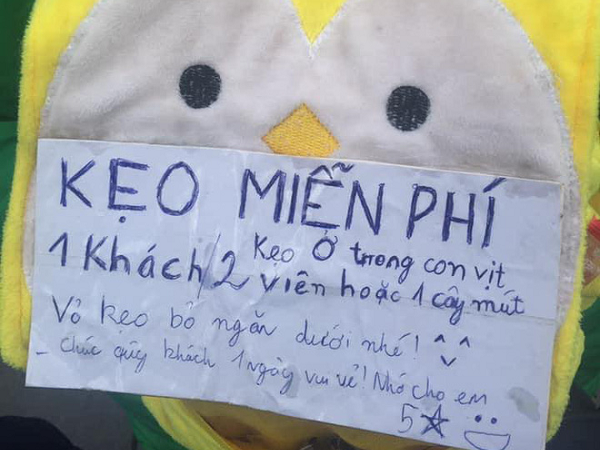 KẸO MIỄN PHÍ
Kẹo Ở trong con vịt
1 Khách/2 viên hoặc 1 cây mút
Vỏ kẹo bỏ ngăn dưới nhé! ^^
- Chúc qúy khách 1 ngày vui vẻ! Nhớ cho em
5☆